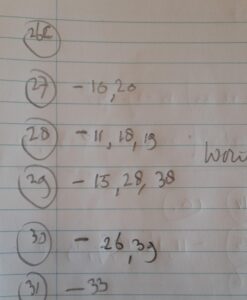 27 - 16, 20
28 - 11, 18, 19
29 - 15, 28, 38
30 - 26, 39
31 - 33